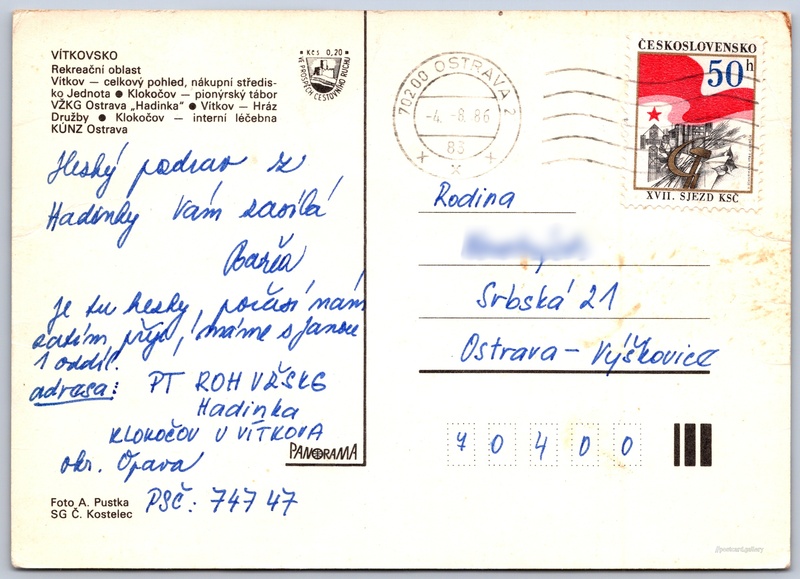 VÍTKOVSKO
Rekreační oblast
Vítkov — celkový pohled, nákupní středis-
ko Jednota ● Klokočov — pionýrský tábor
VŽKG Ostrava „Hadinka" ● Vítkov — Hráz
Družby ● Klokočov — interní léčebna
KÚNZ Ostrava
Kčs 0,20
VE PROSPĚCH CESTOVNÍHO RUCHU
70200 OSTRAVA 2
-4.-8.86
83
ČESKOSLOVENSKO
50h
XVII. SJEZD KSČ
Heský pozdrav z
Hadinky Vám zasílá
Barča
je tu hesky, počasí nám
zatím přije, máme s Janou
1 oddíl.
adrasa: PT ROH VŽSKG
Hadinka
KLOKOČOV U VÍTKOVA
okr. Opava
PSČ: 747 47
PANORAMA
Foto A. Pustka
SG Č. Kostelec
Rodina
Srbská 21
Ostrava - Výškovice
70400
@postcard.gallery